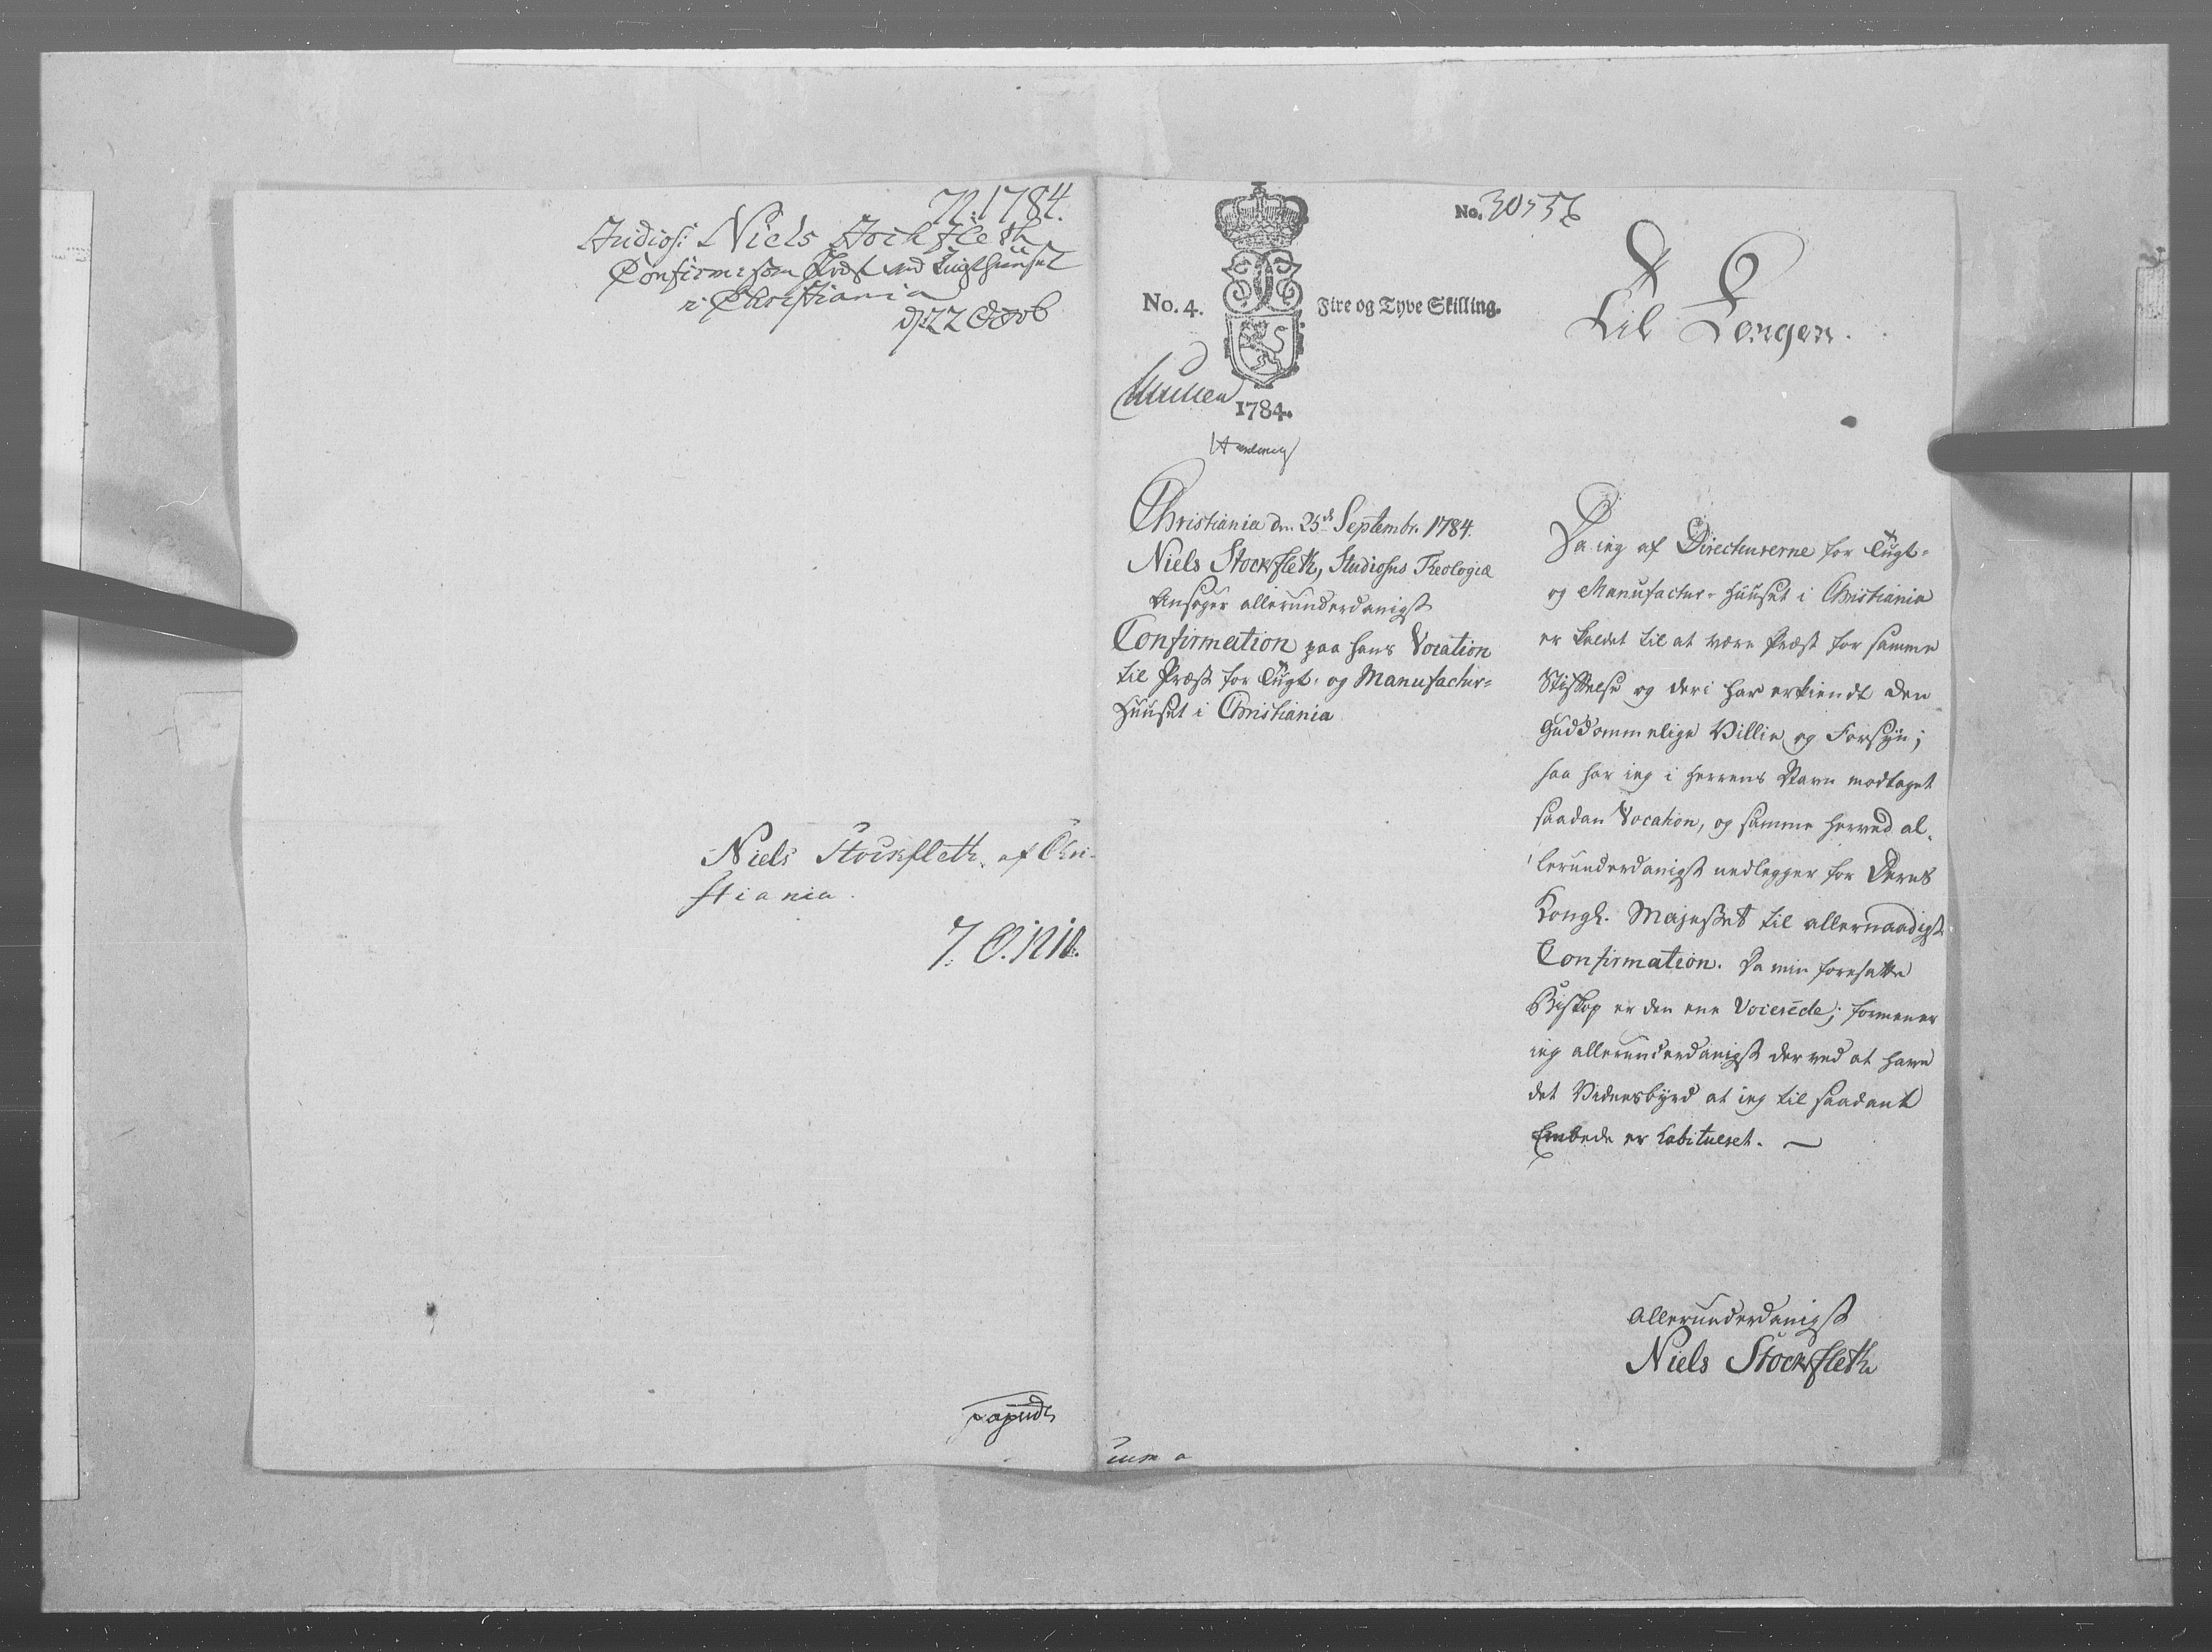 N. 1784.
Studios: Niels Stockfleth
Confirm: som Præst ved Tugthuuset
i Christiania
d. 22 Octob
Niels Stockfleth af Chri-
stiania.
No. 4.
Fire og Tyve Skilling.
1784.
No. 30756
Til Kongen.
Christiania den 25de Septembr. 1784.
Niels Stockfleth, Studiosus Theologiæ
Ansøger allerunderdanigst
Confirmation paa hans Vocation
til Præst for Tugt- og Manufactur-
Huuset i Christiania
Da ieg af Directeurerne for Tugt-
og Manufactur-Huuset i Christiania
er kaldet til at være Præst for samme
Stiftelse og deri har erkiendt den
Guddommelige Villie og Forsyn;
saa har ieg i Herrens Navn modtaget
saadan Vocation, og samme herved al-
lerunderdanigst nedlegger for Deres
Kongl. Majestet til allernaadigst
Confirmation. Da min foresatte
Biskop er den ene Vocerede; formener
ieg allerunderdanigst derved at have
det Vidnesbyrd at ieg til saadant
Embede er habiteret.
Allerunderdanigst
Niels Stockfleth